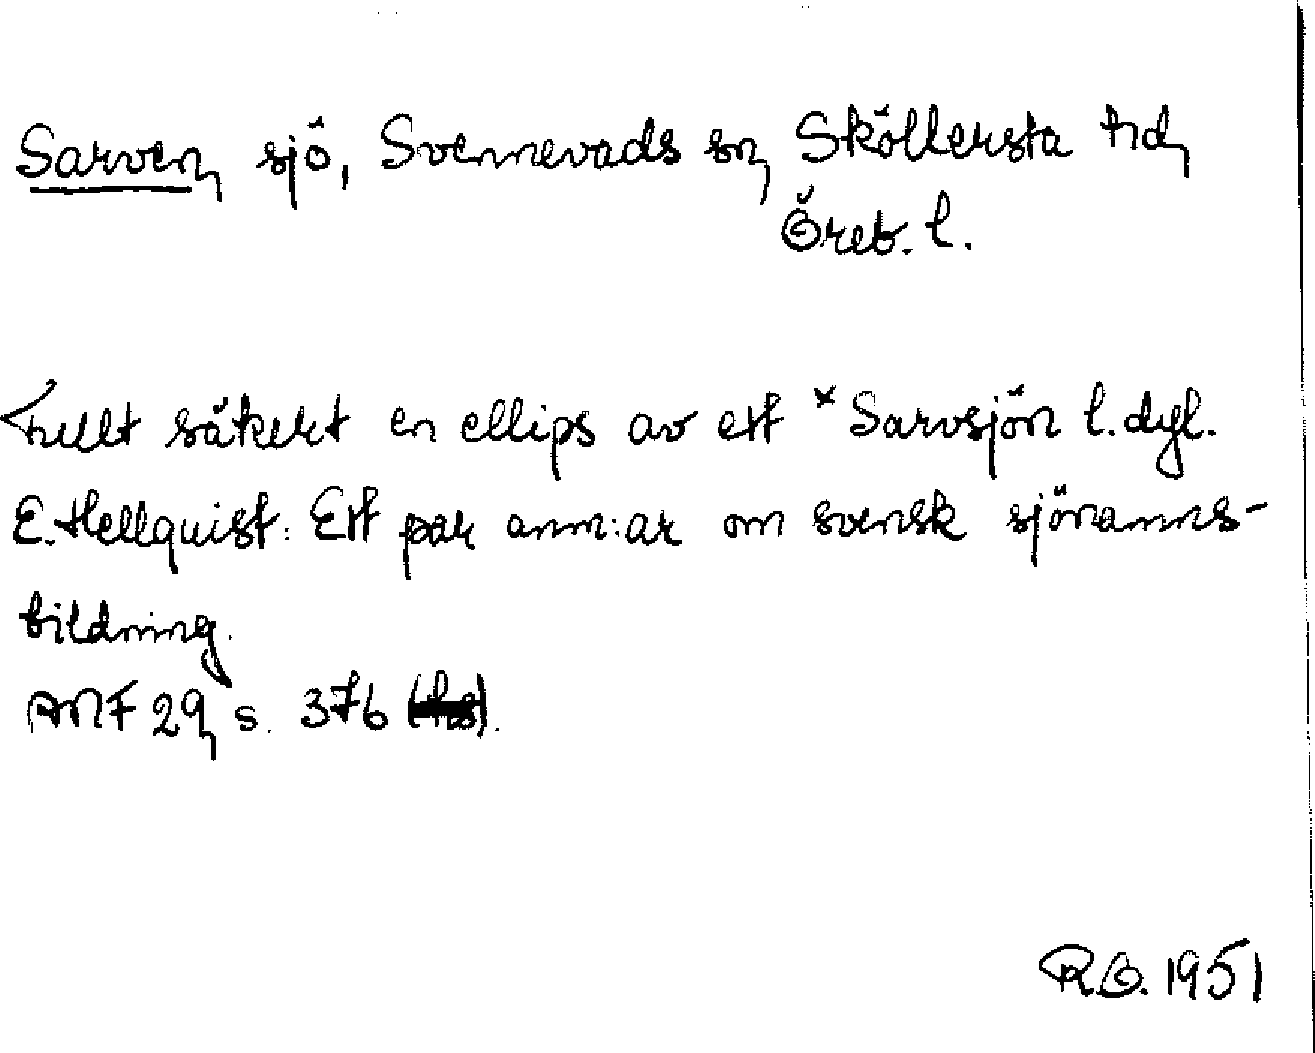 Sarven, sjö, Svennevads sn, Sköllersta hd,
Öreb. l.
Fullt säkert en ellips av ett *Sarvsjön l. dyl.
E. Hellquist: Ett par anm:ar om svensk sjönamns-
bildning.
ANF 29, s. 376
R.O. 1951